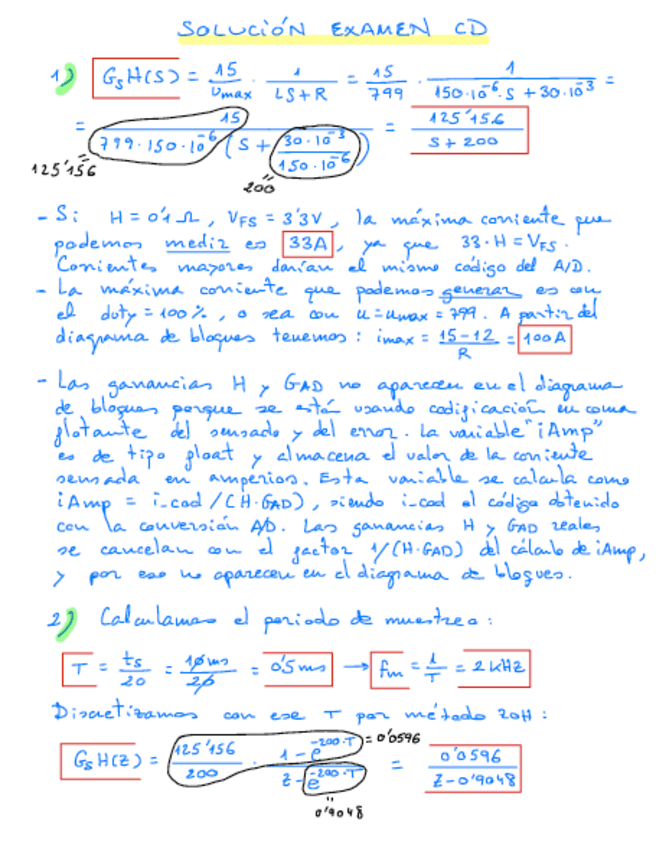 SOLUCIÓN EXAMEN CD
1) GsH(s) = 15/Umax · 1/(LS+R) = 15/799 · 1/(150·10^-6·S + 30·10^-3) =
= 15/(799·150·10^-6 (S + 30·10^-3/150·10^-6)) = 125'156/(S + 200)
125'156
200
- Si H = 0'1 Ω, VFS = 3'3V, la máxima corriente que
podemos medir es 33A, ya que 33·H = VFS.
Corrientes mayores darían el mismo código del A/D.
- La máxima corriente que podemos generar es con
el duty = 100%, o sea con u = umax = 799. A partir del
diagrama de bloques tenemos: imax = (15-12)/R = 100A
- Las ganancias H y GAD no aparecen en el diagrama
de bloques porque se están usando codificación en coma
flotante del sensado y del error. La variable "iAmp"
es de tipo float y almacena el valor de la corriente
sensada en amperios. Esta variable se calcula como
iAmp = i_cod/(H·GAD), siendo i_cod el código obtenido
con la conversión A/D. Las ganancias H y GAD reales
se cancelan con el factor 1/(H·GAD) del cálculo de iAmp,
y por eso no aparecen en el diagrama de bloques.
2) Calculamos el periodo de muestreo:
T = ts/20 = 10ms/20 = 0'5ms → fm = 1/T = 2 kHz
Discretizamos con ese T por método ZOH:
GsH(z) = 125'156/200 · (1 - e^-200·T)/(z - e^-200·T) = 0'0596/(z - 0'9048)
= 0'0596
0'9048